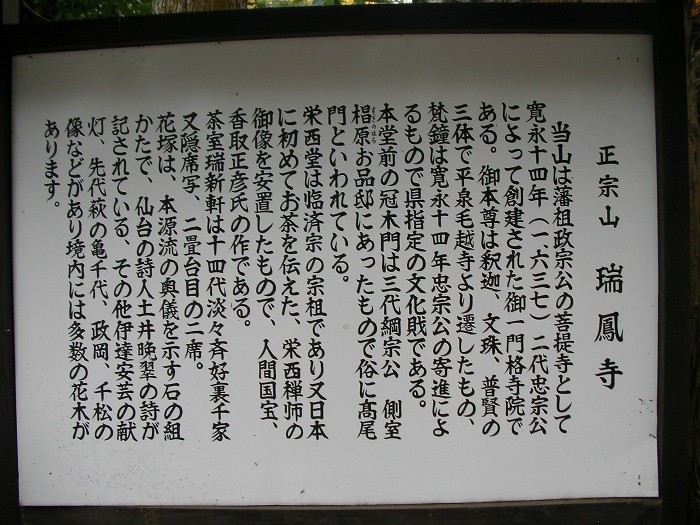 正宗山　瑞鳳寺
当山は藩祖政宗公の菩提寺として
寛永十四年（一六三七）二代忠宗公
によって創建された御一門格寺院で
ある。御本尊は釈迦、文珠、普賢の
三体で平泉毛越寺より遷したもの、
梵鐘は寛永十四年忠宗公の寄進によ
るもので県指定の文化財である。
本堂前の冠木門は三代綱宗公　側室
椙原お品邸にあったもので俗に髙尾
門といわれている。
栄西堂は臨済宗の宗祖であり又日本
に初めてお茶を伝えた、栄西禅师の
御像を安置したもので、人間国宝、
香取正彦氏の作である。
茶室瑞新軒は十四代淡々斉好裏千家
又隠席写、二畳台目の二席。
花塚は、本源流の奥儀を示す石の組
かたで、仙台の詩人土井晩翠の詩が
記されている、その他伊達安芸の献
灯、先代萩の亀千代、政岡、千松の
像などがあり境内には多数の花木が
あります。